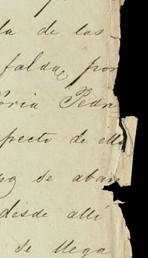 la de las
falda, por
oria Pedr
specto de ell
se aban
desde allí
se llega